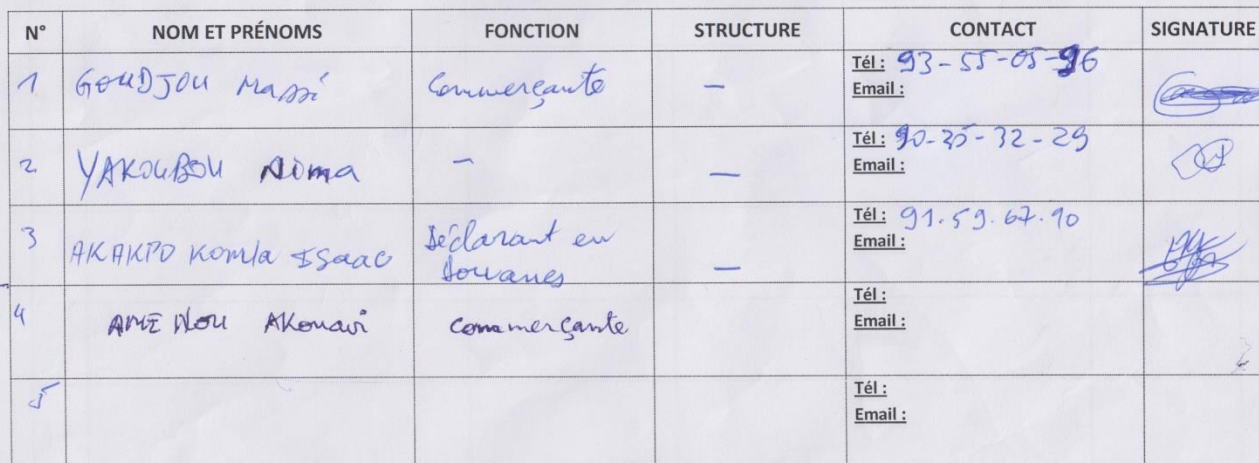 N° NOM ET PRÉNOMS FONCTION STRUCTURE CONTACT SIGNATURE
1 GOUDJOU Massi Commerçante — Tél : 93-55-05-96
Email :
2 YAKOUBOU — — Tél : 90-35-32-29
Email :
3 AKAKPO Komla ISaac Déclarant en douanes — Tél : 91.59.67.90
Email :
4 AMENOU AKouavi Commerçante Tél :
Email :
5 Tél :
Email :